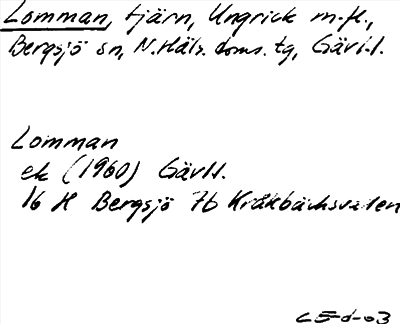 Lomman, tjärn, Ungrick m.fl.,
Bergsjö sn, N.Häls. doms. tg, Gävl.l.
Lomman
ek (1960) Gävll.
16 H Bergsjö 7b Kråkbäcksvallen
C5-d-03